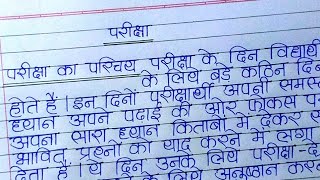 परीक्षा
परीक्षा का परिचय परीक्षा के दिन विद्यार्थी
के लिये बड़े कठिन दिन
होते हैं। इन दिनों परीक्षार्थी अपनी समस्त
ध्यान अपने पढ़ाई की ओर फोकस
अपना सारा ध्यान किताबों में देकर
भावित प्रश्नों को याद करने में लगा
देता है। ये दिन उनके लिये परीक्षा
के लिये अनुष्ठान